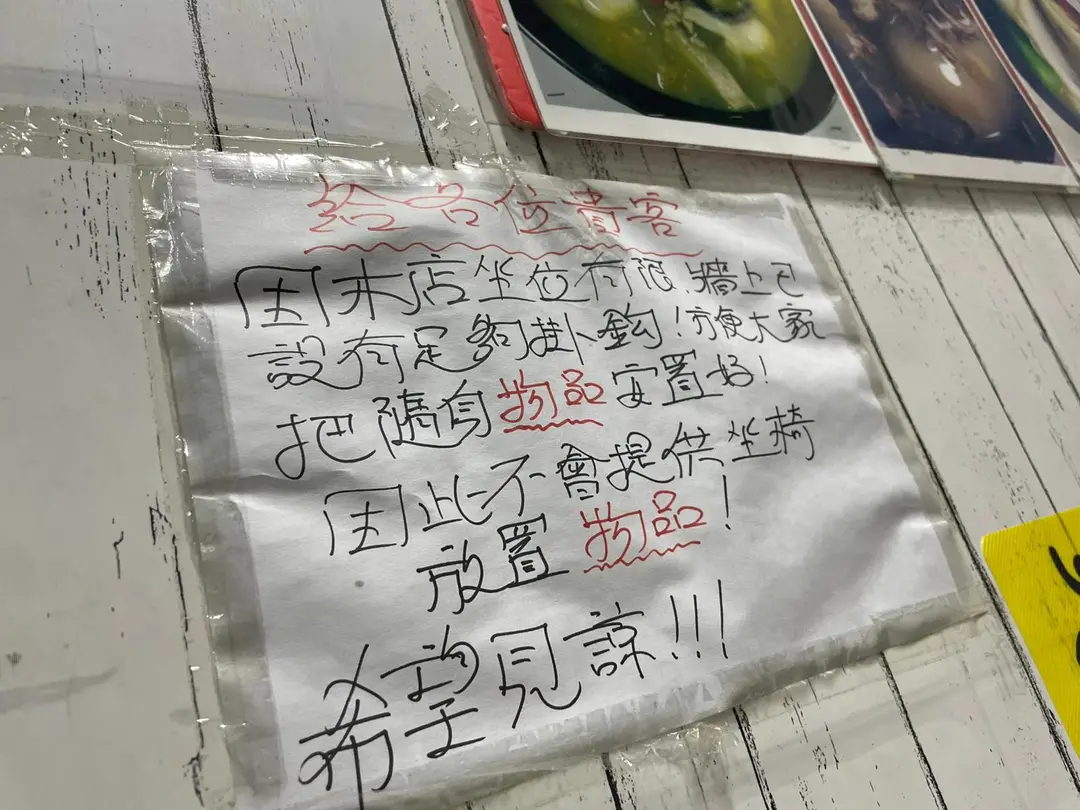 給各位貴客
因本店坐位有限 牆上已
設有足夠掛鈎！方便大家
把隨身物品安置好！
因此不會提供坐椅
放置物品！
希望見諒!!!